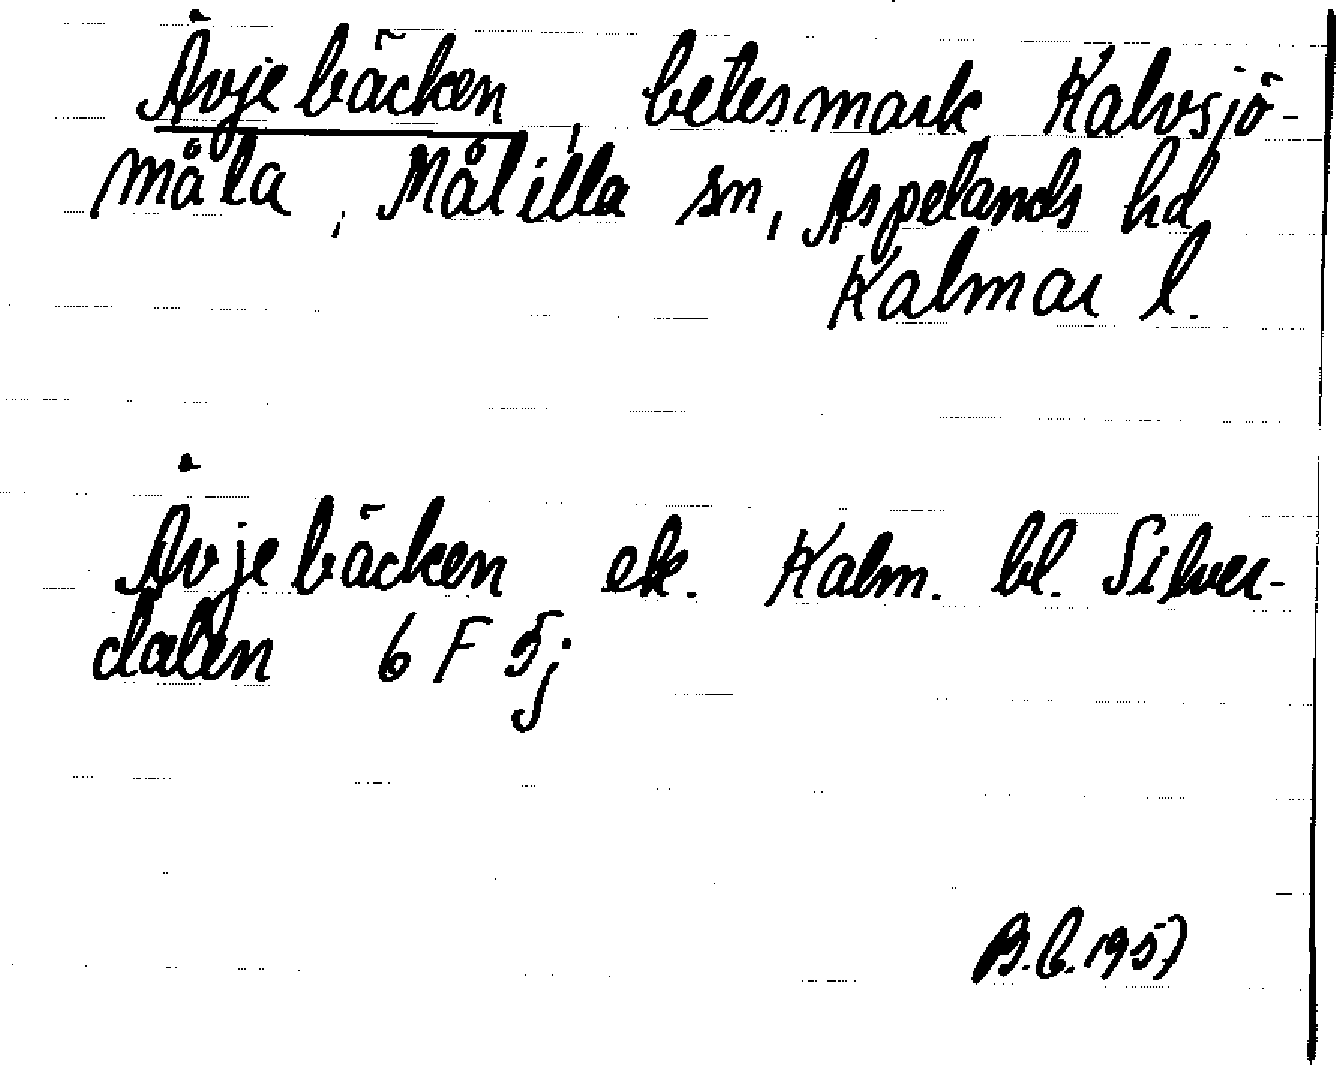 Åvjebäcken, betesmark, Kalvsjö-
måla, Målilla sn, Aspelands hd,
Kalmar l.
Åvjebäcken ek. Kalm. bl. Silver-
dalen 6 F 5j
B.E. 1957